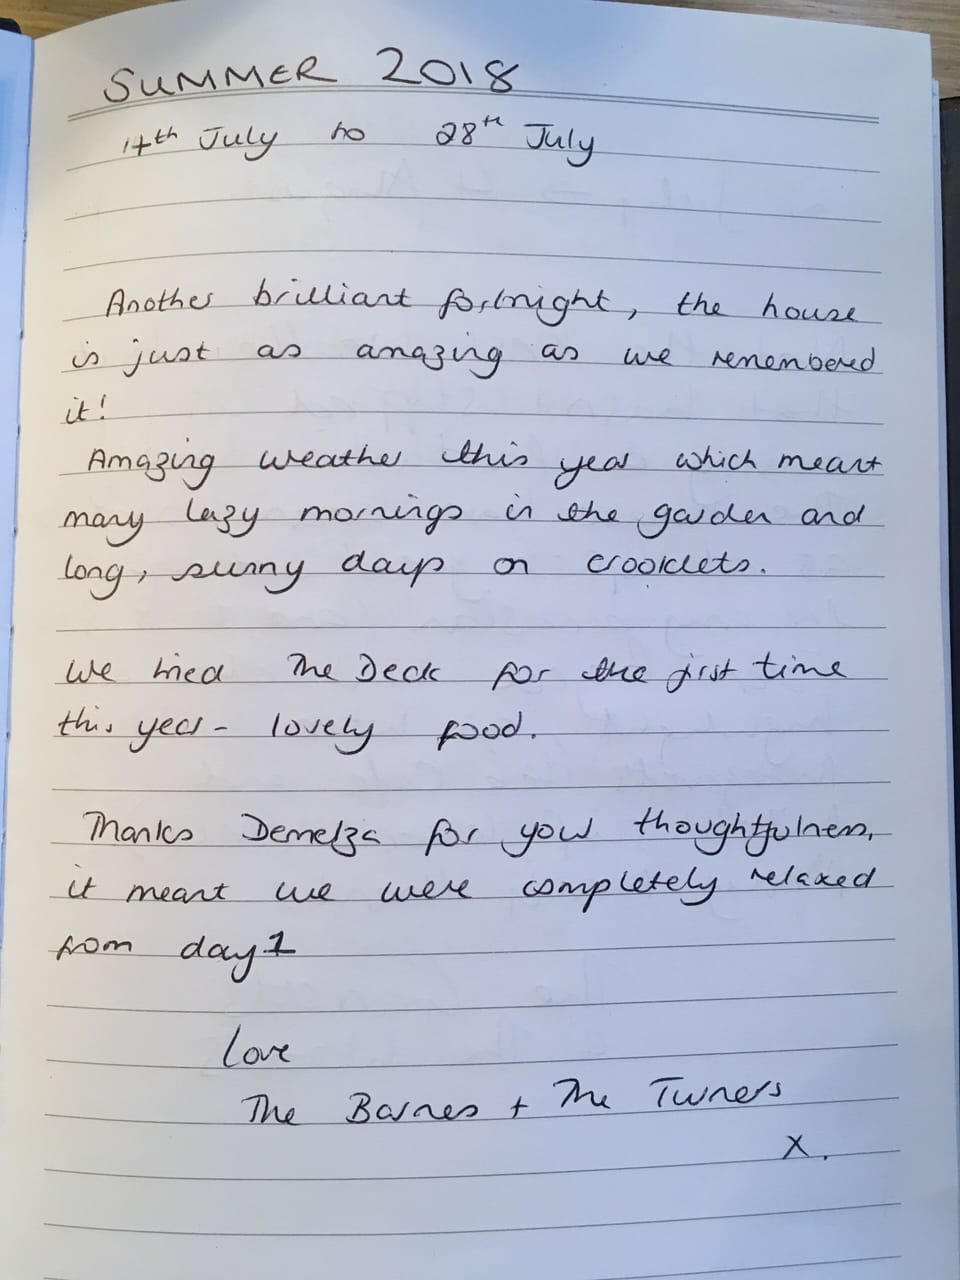 SUMMER 2018
14th July to 28th July
Another brilliant fortnight, the house
is just as amazing as we remembered
it!
Amazing weather this year which meant
many lazy mornings in the garden and
long, sunny days on crooklets.
We tried The Deck for the first time
this year - lovely food.
Thanks Demelza for your thoughtfulness,
it meant we were completely relaxed
from day 1
Love
The Barnes + The Turners
X.